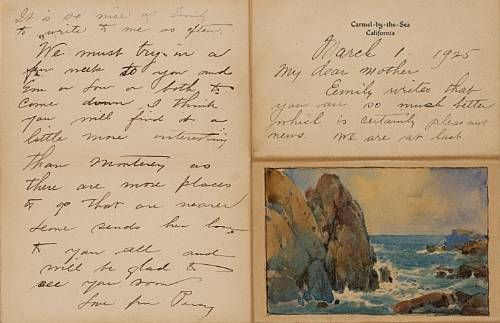 Carmel-by-the-Sea
California
March 1 - 1925
My dear Mother
Emily writes that
you are so much better
which is certainly pleasant
news. We are at last
It is so nice of Emily
to write to me so often.
We must try in a
few weeks to you and
Em or Lou or both to
come down, I think
you will find it a
little more interesting
than Monterey as
there are more places
to go that are nearer
sends her love
to you all and
will be glad to
see you soon
Love from Percy